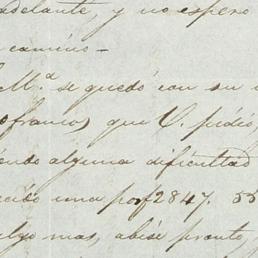 adelante, y no espero
camino —
M.ª se quedó con su
francos, que V. pidió
alguna dificultad
una por £2847. 55
algo mas, abise pronto,